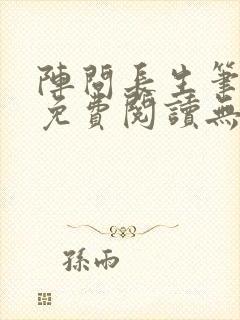 陣問長生筆
免費閱讀無
孫雨